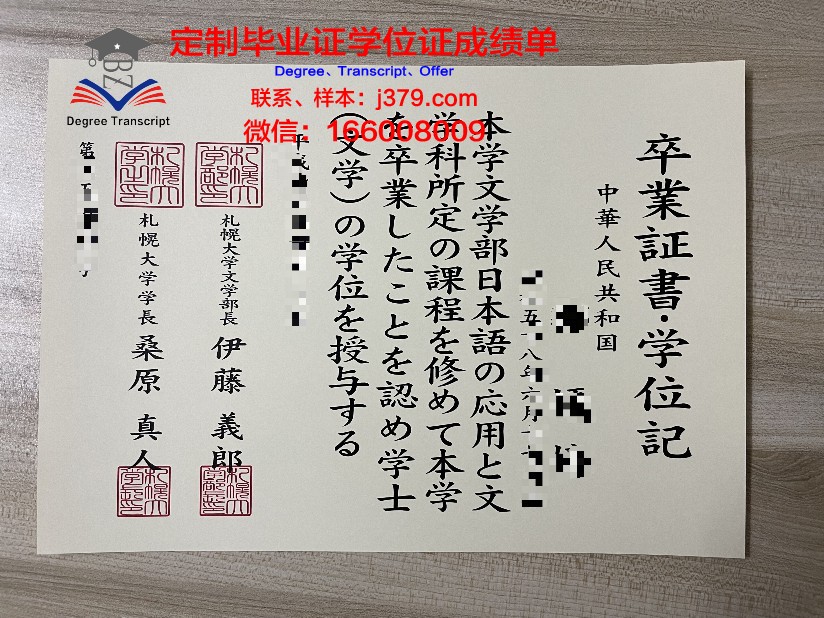 定制毕业证学位证成绩单
Degree、Transcript、Offer
联系、样本：j379.com
微信：166008009
BZ
Degree Transcript
卒業証書・学位記
中華人民共和国
本学文学部日本語の応用と文
学科所定の課程を修めて本学
を卒業したことを認め学士
（文学）の学位を授与する
札幌大学文学部長 伊藤義郎
札幌大学学長 桑原真人